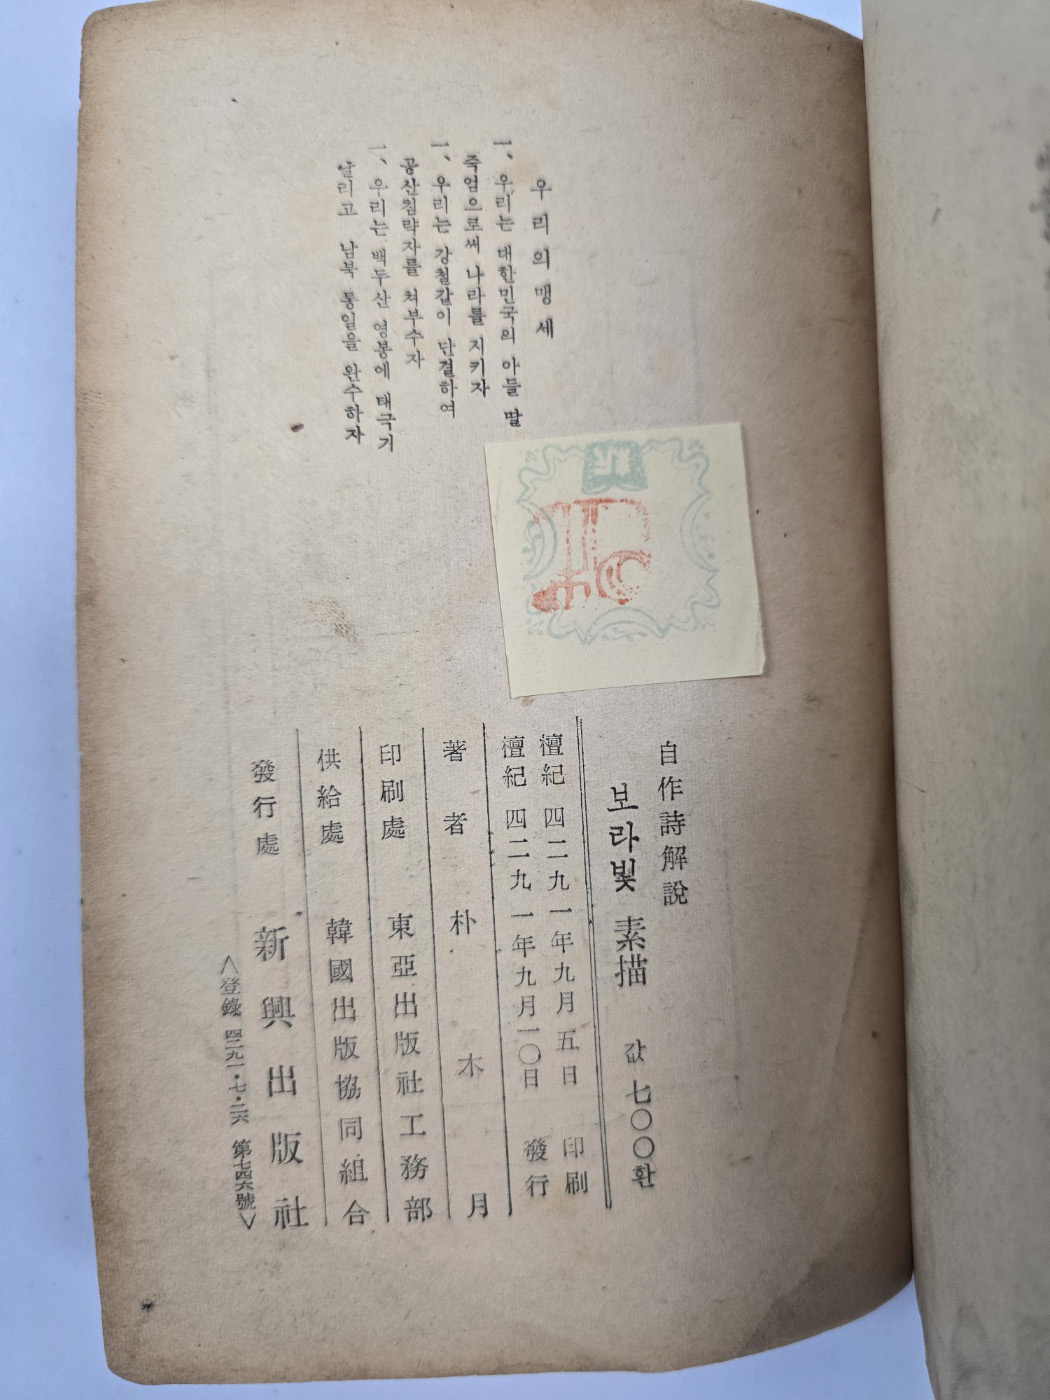 우리의 맹세
一、우리는 대한민국의 아들 딸
죽엄으로써 나라를 지키자
一、우리는 강철같이 단결하여
공산침략자를 쳐부수자
一、우리는 백두산 영봉에 태극기
날리고 남북 통일을 완수하자
自作詩解說
보라빛 素描 값 七〇〇환
檀紀 四二九一年九月五日 印刷
檀紀 四二九一年九月一〇日 發行
著者 朴木月
印刷處 東亞出版社工務部
供給處 韓國出版協同組合
發行處 新興出版社
<登錄 四二九一·七·二六 第七四六號>